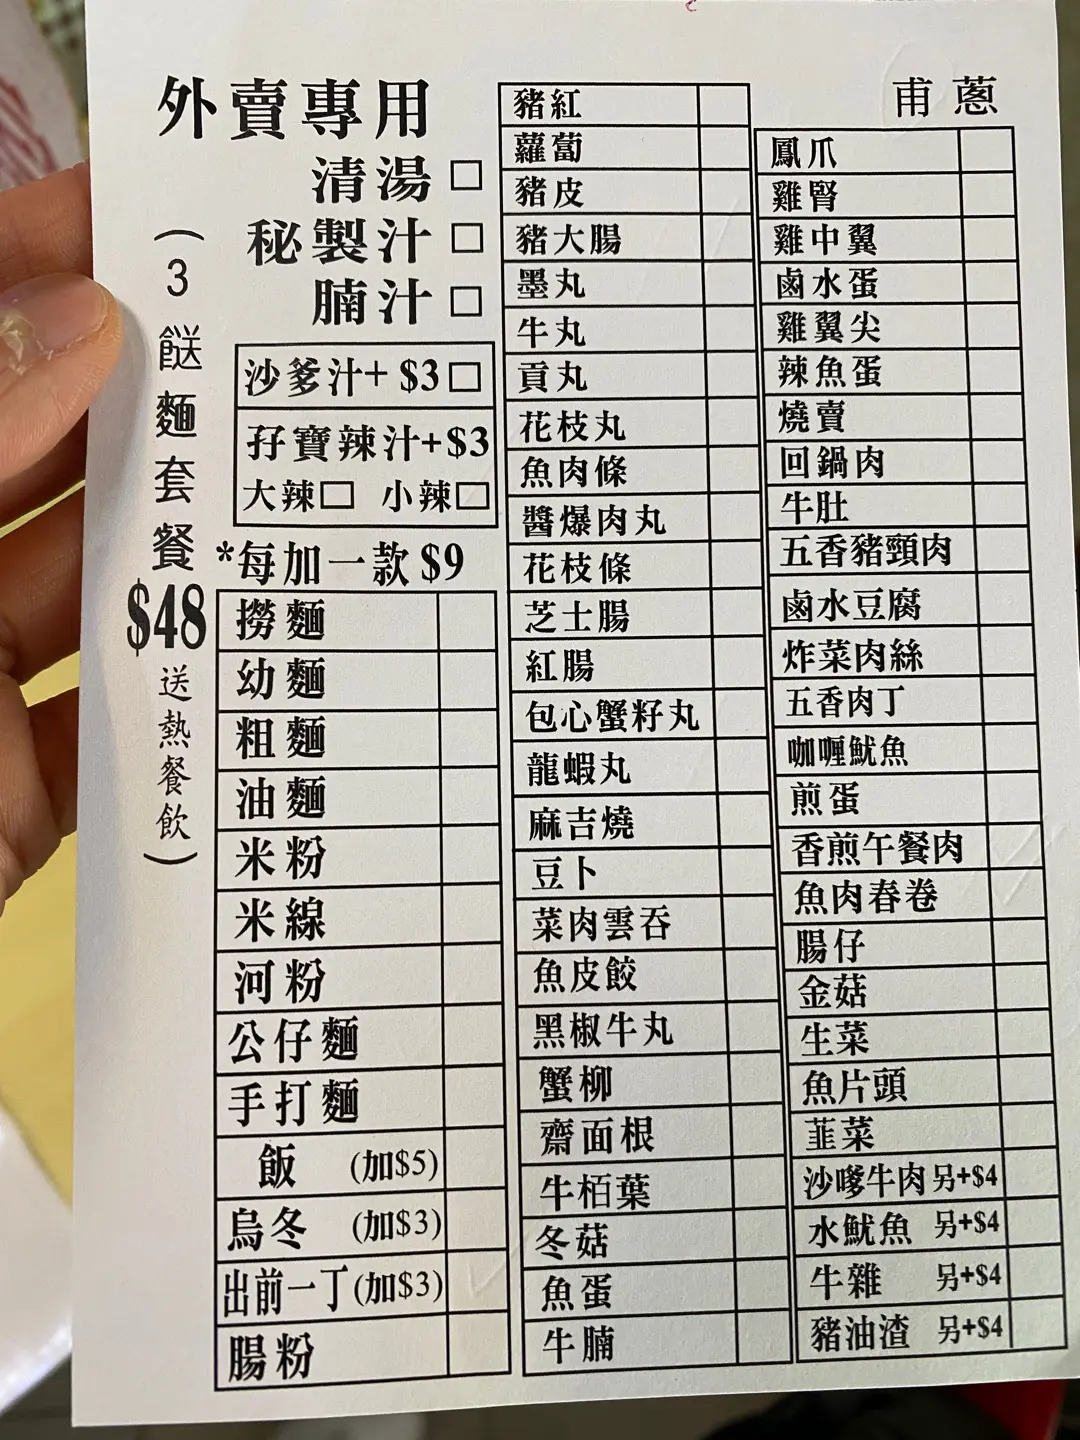 外賣專用
清湯 □
秘製汁 □
腩汁 □
沙爹汁+ $3 □
孖寶辣汁+$3
大辣□ 小辣□
*每加一款 $9
(3餸麵套餐
$48
送熱餐飲)
撈麵
幼麵
粗麵
油麵
米粉
米線
河粉
公仔麵
手打麵
飯 (加$5)
烏冬 (加$3)
出前一丁(加$3)
腸粉
豬紅
蘿蔔
豬皮
豬大腸
墨丸
牛丸
貢丸
花枝丸
魚肉條
醬爆肉丸
花枝條
芝士腸
紅腸
包心蟹籽丸
龍蝦丸
麻吉燒
豆卜
菜肉雲吞
魚皮餃
黑椒牛丸
蟹柳
齋面根
牛栢葉
冬菇
魚蛋
牛腩
甫蔥
鳳爪
雞腎
雞中翼
鹵水蛋
雞翼尖
辣魚蛋
燒賣
回鍋肉
牛肚
五香豬頸肉
鹵水豆腐
炸菜肉絲
五香肉丁
咖喱魷魚
煎蛋
香煎午餐肉
魚肉春卷
腸仔
金菇
生菜
魚片頭
韮菜
沙嗲牛肉 另+$4
水魷魚 另+$4
牛雜 另+$4
豬油渣 另+$4